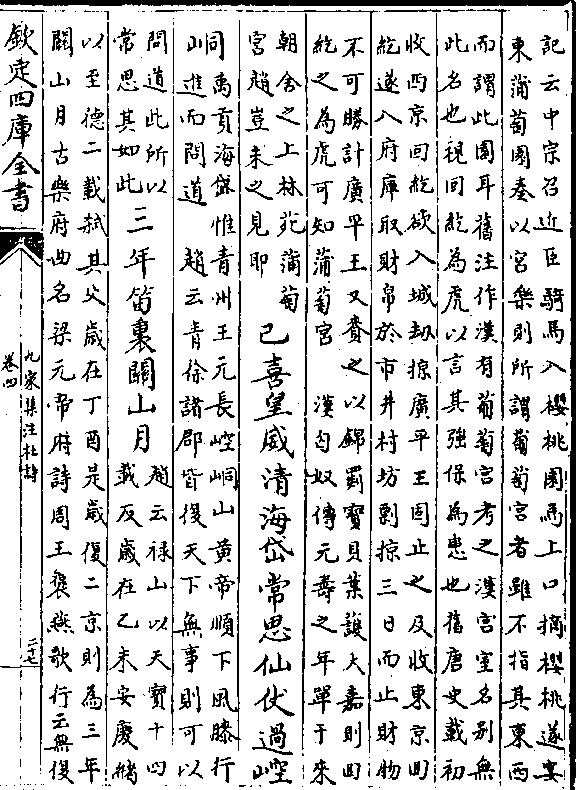 記云中宗召近臣騎馬入櫻桃園馬上口摘櫻桃遂宴
東蒲萄園奏以宮樂則所謂蒲萄宮者雖不指其東西
而謂此園耳舊注作漢有葡萄宮考之漢宫室名别無
此名也視回紇為虎以言其强保為患也舊唐史載初
收西京回紇欲入城劫掠廣平王固止之及收東京回
紇遂入府庫取財帛於市井村坊剽掠三日而止財物
不可勝計廣平王又賚之以錦罽寶貝葉護大喜則回
紇之為虎可知蒲萄宮 漢匈奴傳元壽之年單于來
朝舍之上林苑蒲萄
宮趙豈未之見耶
已喜皇威清海岱常思仙仗過崆
峒禹貢海岱惟青州王元長崆峒山黄帝順下風膝行
而進而問道 趙云青徐諸郡皆復天下無事則可以
問道此所以
常思其如此
三年笛裏關山月
趙云禄山以天寶十四
載反歲在乙未安慶緒
以至德二載弑其父歲在丁酉是歲復二京則為三年
關山月古樂府曲名梁元帝有詩周王褒燕歌行云無復
欽定四庫全書
九家集注杜詩
卷四
二十七